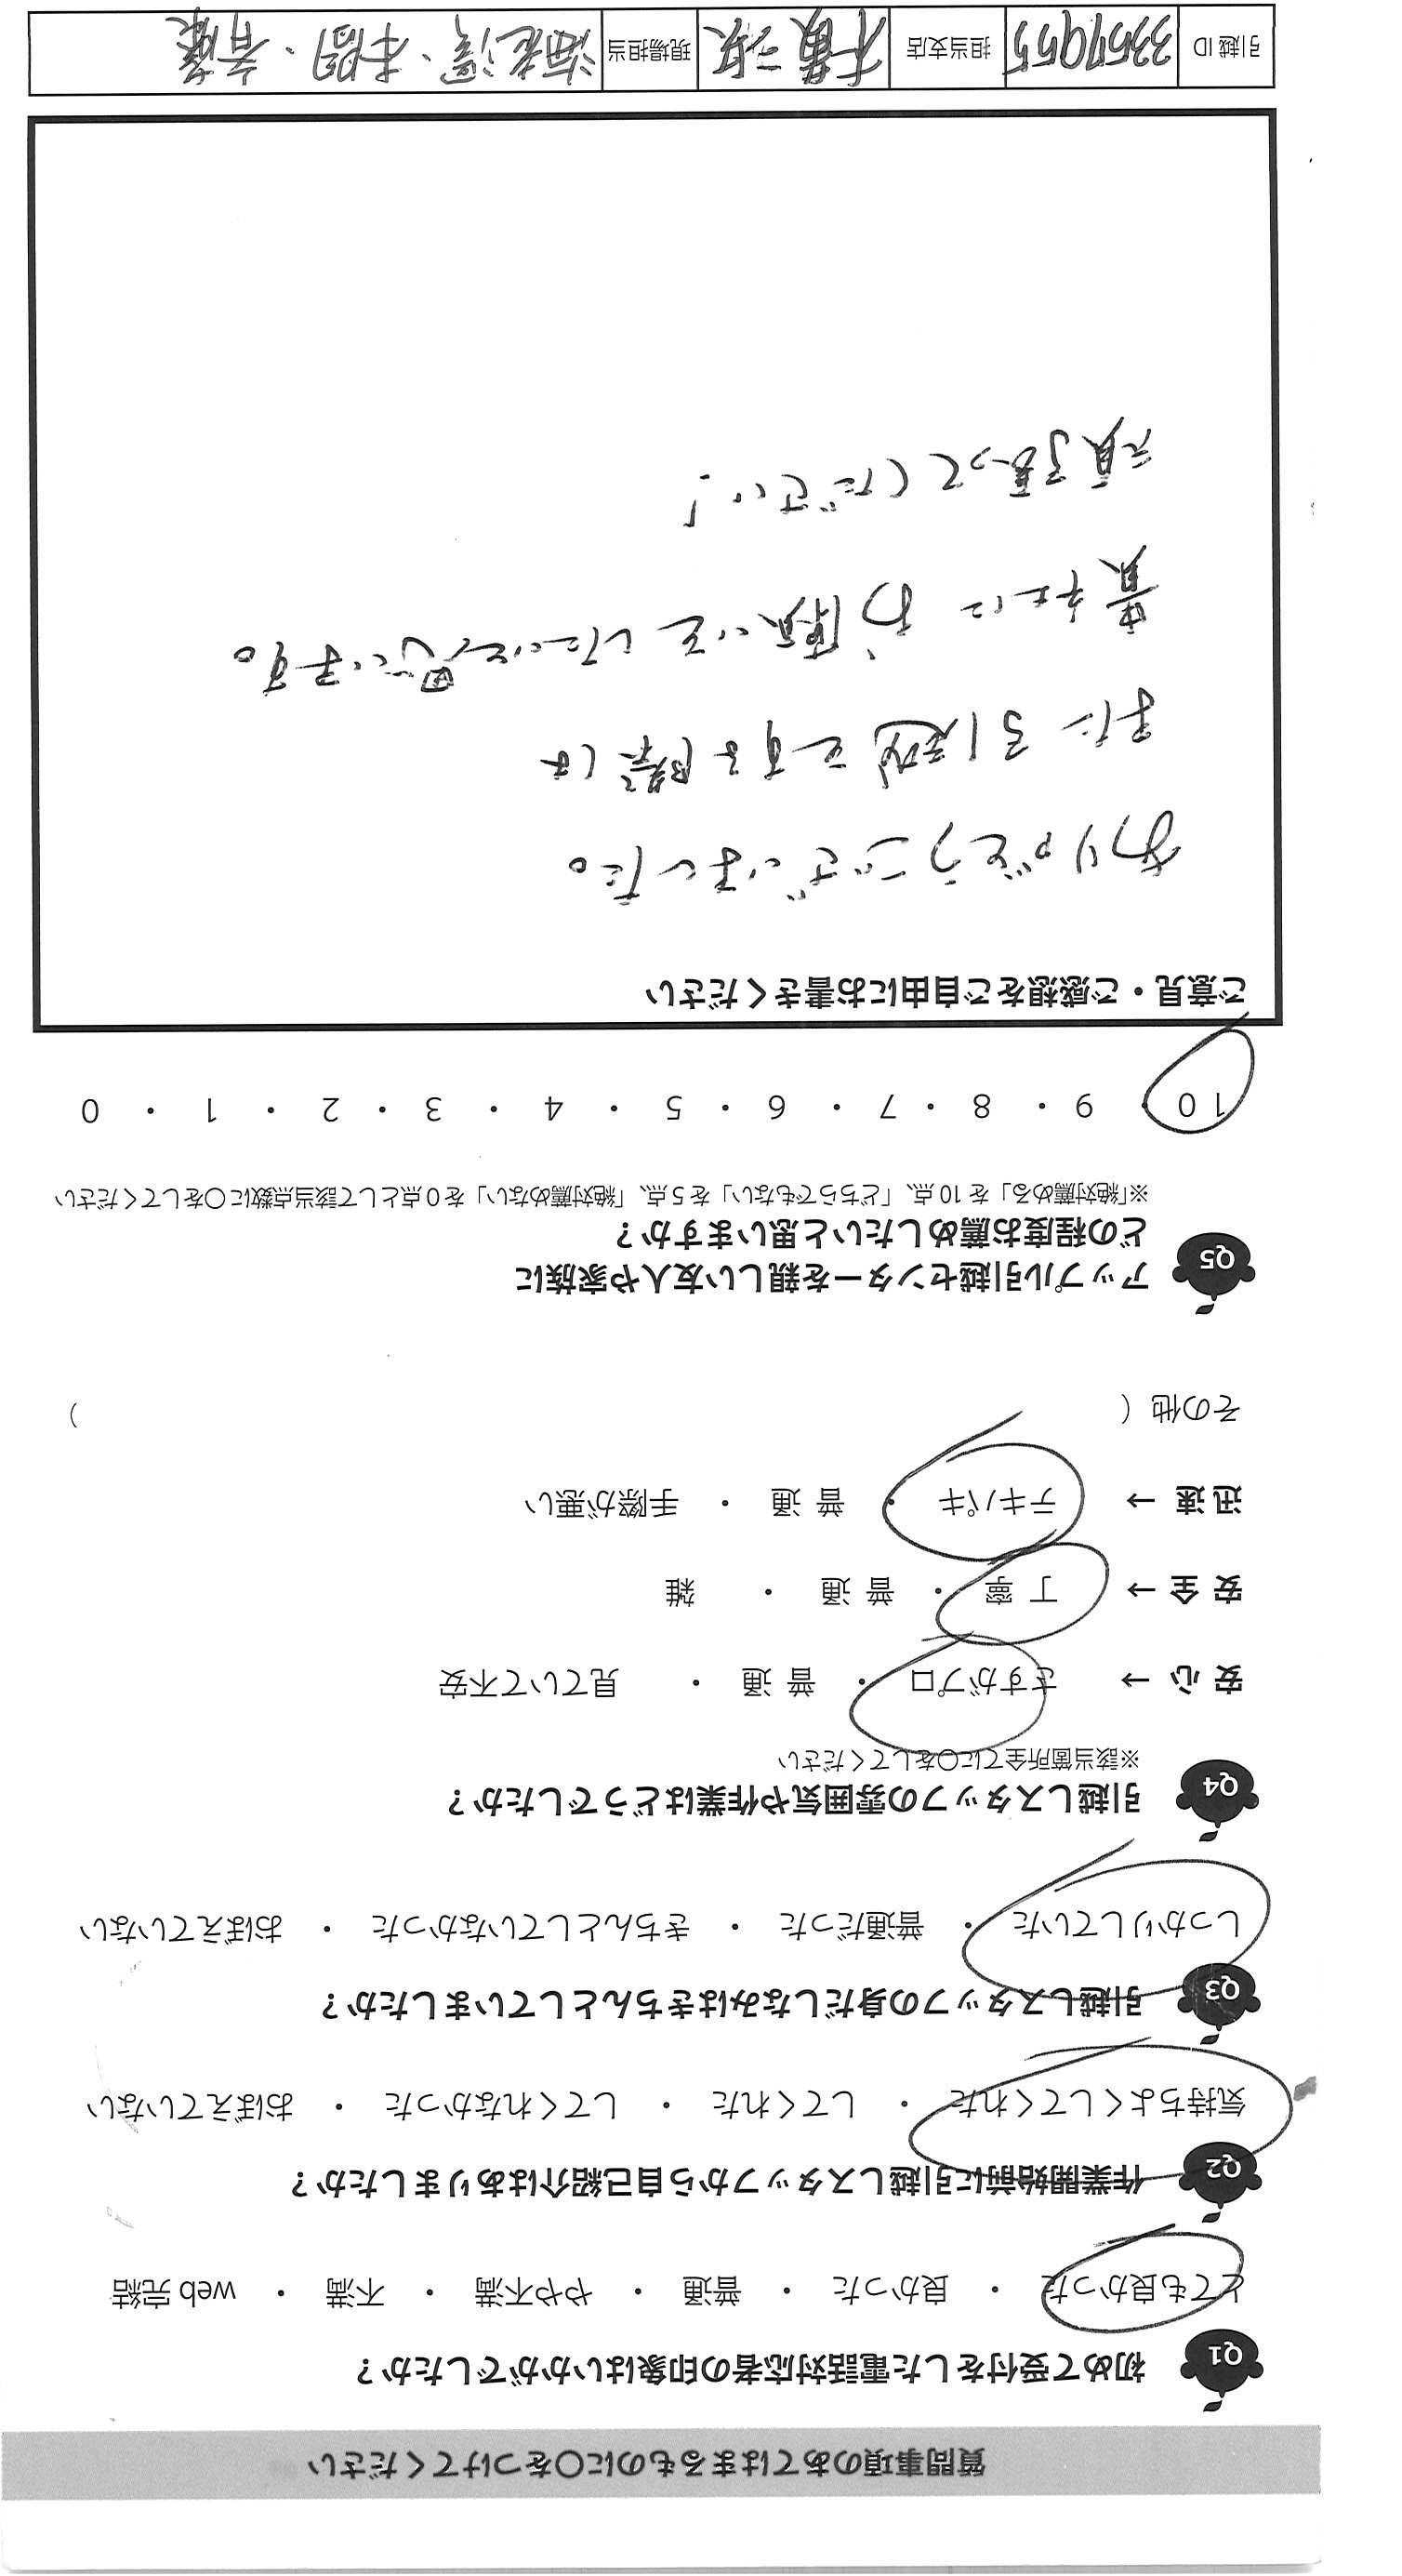 質問事項のあてはまるものに〇をつけてください
Q1 初めて受付をした電話対応者の印象はいかがでしたか？
とても良かった ・ 良かった ・ 普通 ・ やや不満 ・ 不満 ・ web 完結
Q2 作業開始前に引越しスタッフから自己紹介はありましたか？
気持ちよくしてくれた ・ してくれた ・ してくれなかった ・ おぼえていない
Q3 引越しスタッフの身だしなみはきちんとしていましたか？
しっかりしていた ・ 普通だった ・ きちんとしていなかった ・ おぼえていない
Q4 引越しスタッフの雰囲気や作業はどうでしたか？
※該当箇所全てに〇をしてください
安心 → さすがプロ ・ 普通 ・ 見ていて不安
安全 → 丁寧 ・ 普通 ・ 雑
迅速 → テキパキ ・ 普通 ・ 手際が悪い
その他（ ）
Q5 アップル引越センターを親しい友人や家族に
どの程度お薦めしたいと思いますか？
※「絶対薦める」を 10 点、「どちらでもない」を 5 点、「絶対薦めない」を 0 点として該当点数に〇をしてください
10 ・ 9 ・ 8 ・ 7 ・ 6 ・ 5 ・ 4 ・ 3 ・ 2 ・ 1 ・ 0
ご意見・ご感想をご自由にお書きください
ありがとうございました。
また引越をする際は
貴社にお願いをしたいと思います。
頑張ってください！
引越 ID 担当支店 現場担当 海老澤、本間、斉藤